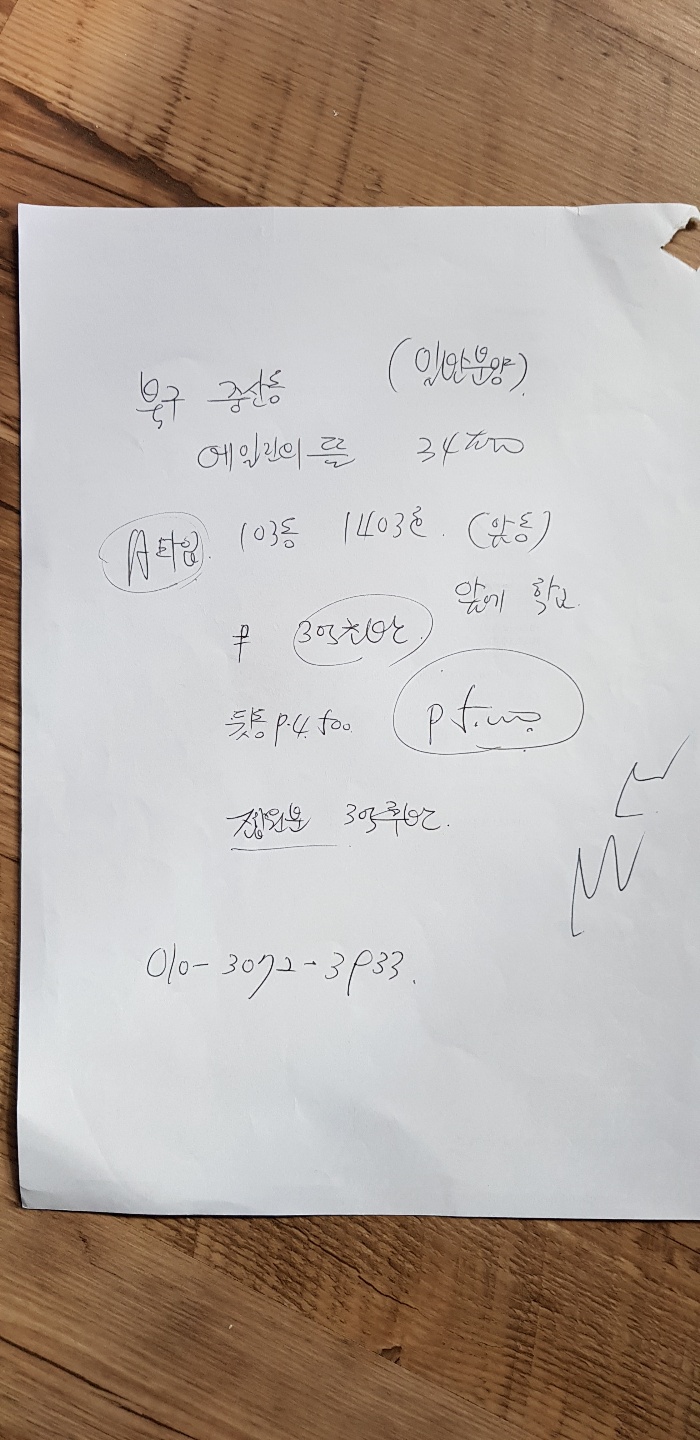 북구 중산동 (일반분양)
에일린의뜰 34
A타입. 103동 1403호. (앞동)
앞에 학교.
3억초반.
뒷동 P.4.500.
P 5.000
조합원분 3억후반.
010-3072-3933.